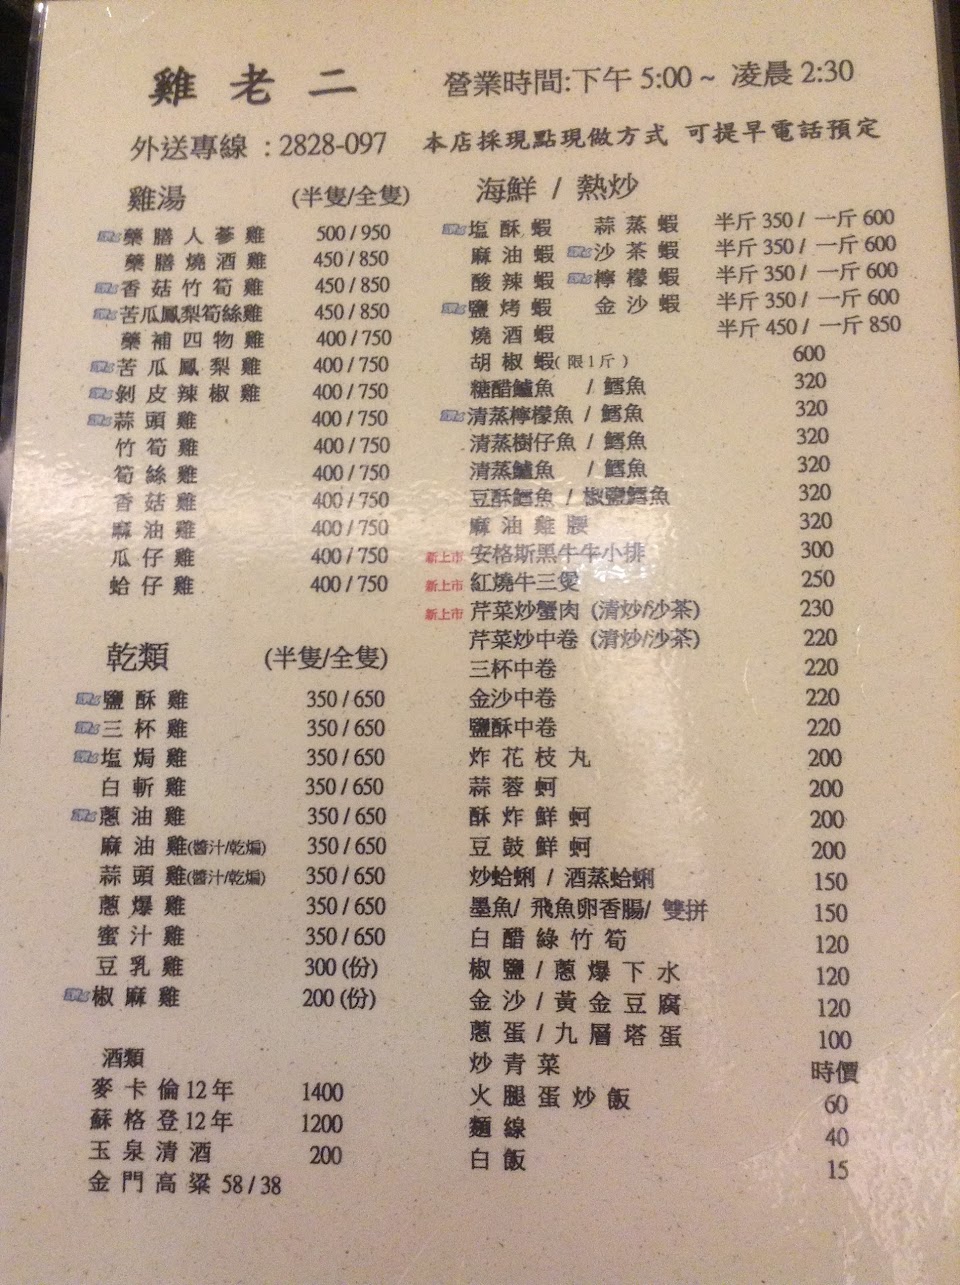 雞老二
營業時間:下午 5:00 ~ 凌晨 2:30
外送專線 : 2828-097
本店採現點現做方式 可提早電話預定
雞湯 (半隻/全隻)
藥膳人蔘雞 500 / 950
藥膳燒酒雞 450 / 850
香菇竹筍雞 450 / 850
苦瓜鳳梨筍絲雞 450 / 850
藥補四物雞 400 / 750
苦瓜鳳梨雞 400 / 750
剝皮辣椒雞 400 / 750
蒜頭雞 400 / 750
竹筍雞 400 / 750
筍絲雞 400 / 750
香菇雞 400 / 750
麻油雞 400 / 750
瓜仔雞 400 / 750
蛤仔雞 400 / 750
乾類 (半隻/全隻)
鹽酥雞 350 / 650
三杯雞 350 / 650
塩焗雞 350 / 650
白斬雞 350 / 650
蔥油雞 350 / 650
麻油雞(醬汁/乾煸) 350 / 650
蒜頭雞(醬汁/乾煸) 350 / 650
蔥爆雞 350 / 650
蜜汁雞 350 / 650
豆乳雞 300 (份)
椒麻雞 200 (份)
酒類
麥卡倫12年 1400
蘇格登12年 1200
玉泉清酒 200
金門高粱 58 / 38
海鮮 / 熱炒
塩酥蝦 蒜蒸蝦 半斤 350 / 一斤 600
麻油蝦 沙茶蝦 半斤 350 / 一斤 600
酸辣蝦 檸檬蝦 半斤 350 / 一斤 600
鹽烤蝦 金沙蝦 半斤 350 / 一斤 600
燒酒蝦 半斤 450 / 一斤 850
胡椒蝦(限1斤) 600
糖醋鱸魚 / 鱈魚 320
清蒸檸檬魚 / 鱈魚 320
清蒸樹仔魚 / 鱈魚 320
清蒸鱸魚 / 鱈魚 320
豆酥鱈魚 / 椒鹽鱈魚 320
麻油雞腰 320
新上市 安格斯黑牛牛小排 300
新上市 紅燒牛三寶 250
新上市 芹菜炒蟹肉 (清炒/沙茶) 230
芹菜炒中卷 (清炒/沙茶) 220
三杯中卷 220
金沙中卷 220
鹽酥中卷 220
炸花枝丸 200
蒜蓉蚵 200
酥炸鮮蚵 200
豆鼓鮮蚵 200
炒蛤蜊 / 酒蒸蛤蜊 150
墨魚/ 飛魚卵香腸/ 雙拼 150
白醋綠竹筍 120
椒鹽 / 蔥爆下水 120
金沙 / 黃金豆腐 120
蔥蛋 / 九層塔蛋 100
炒青菜 時價
火腿蛋炒飯 60
麵線 40
白飯 15